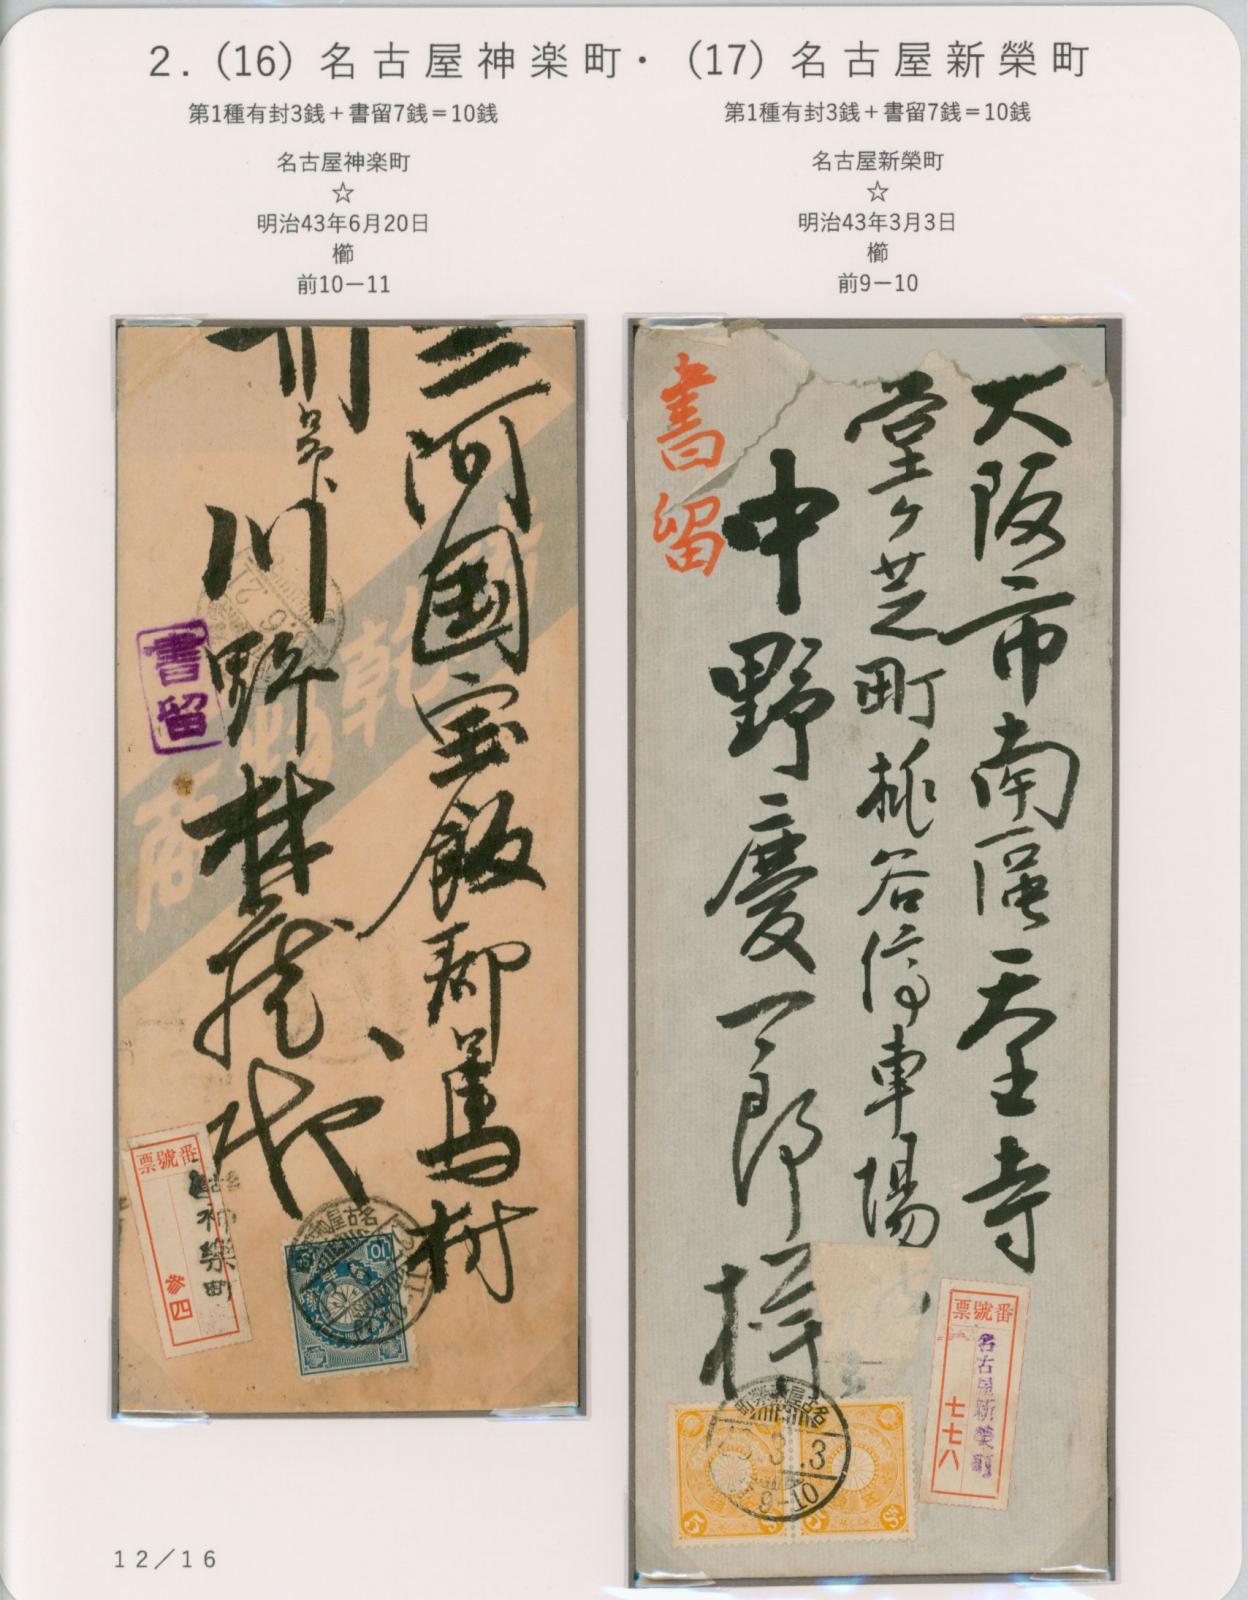 2.(16)名古屋神楽町・(17)名古屋新榮町
第1種有封3銭+書留7銭=10銭
名古屋神楽町
☆
明治43年6月20日
櫛
前10ー11
第1種有封3銭+書留7銭=10銭
名古屋新榮町
☆
明治43年3月3日
櫛
前9ー10
三河国宝飯郡
村
川野
書留
票號番
神樂町
参四
10
大阪市南区天王寺
堂ヶ芝町桃谷停車場
中野慶一郎様
書留
票號番
名古屋新榮町
七七八
名古屋新榮町
43.3.3
9-10
5
5
12/16